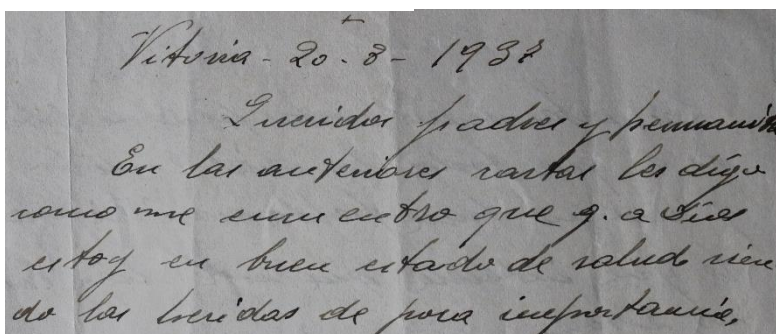 Vitoria - 20 - 8 - 1937
Queridos padres y hermanito
En las anteriores cartas les digo
como me encuentro que g. a Dios
estoy en buen estado de salud sien
do las heridas de poca importancia.